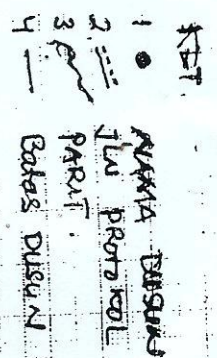 KET.
1 ● NAMA DUSUN
2 JLN PROTOKOL
3 PARIT.
4 — Batas DUSUN